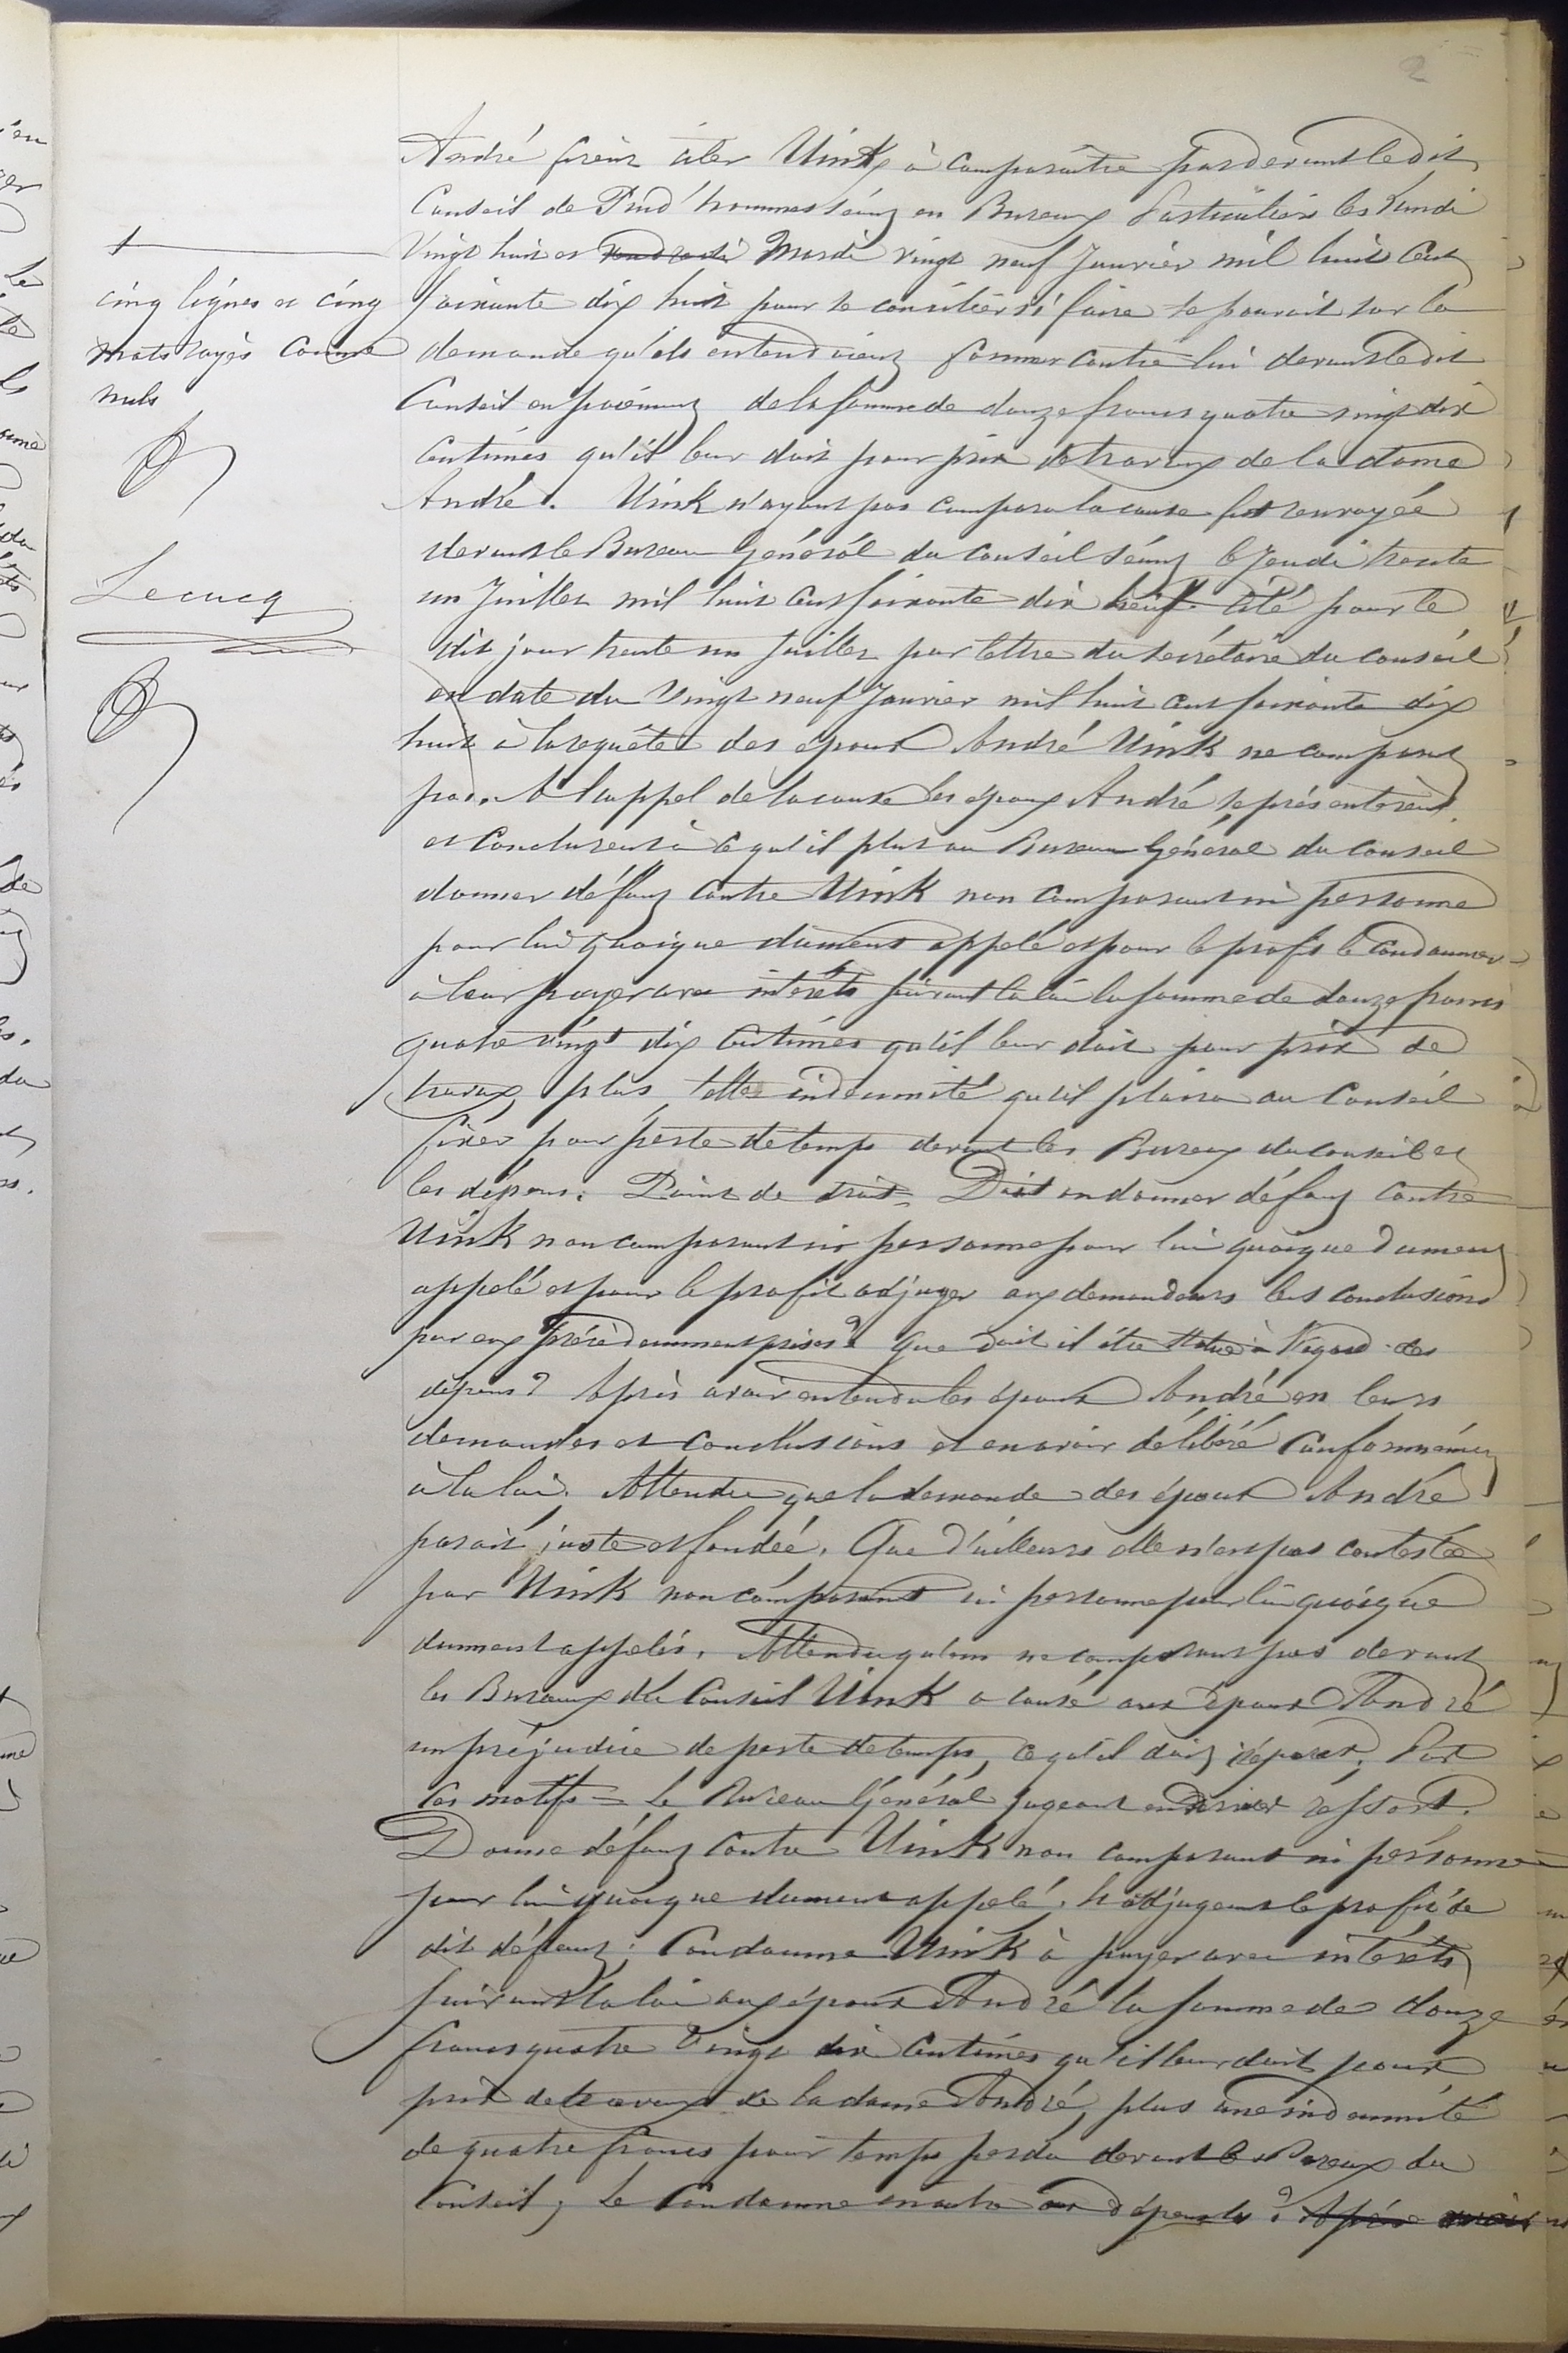 2
André firent citer Uink à comparaître pardevant le dit
Conseil de Prud'hommes séant en Bureaux Particuliers les Lundi
vingt huit et Mardi vingt neuf Janvier mil huit cent
soixante dix huit pour se concilier si faire se pouvait sur la
demande qu'ils entendaient former contre lui devant le dit
Conseil en paiement de la somme de douze francs quatre vingt dix
centimes qu'il leur doit pour prix de travaux de la dame
André. Uink n'ayant pas comparu la cause fut renvoyée
devant le Bureau Général du Conseil séant le Jeudi trente
un Juillet mil huit cent soixante dix Cité pour le
dit jour trente un Juillet par lettre du secrétaire du conseil
en date du vingt neuf Janvier mil huit cent soixante dix
huit à la requête des époux André Uink ne comparut
pas. A l'appel de la cause les époux André se présentèrent
et conclurent à ce qu'il plut au Bureau Général du Conseil
donner défaut contre Uink non comparant ni personne
pour lui quoique dument appelé et pour le profit le condamner
à leur payer avec intérêts suivant la loi la somme de douze francs
quatre vingt dix centimes qu'il leur doit pour prix de
travaux, plus telle indemnité qu'il plaira au Conseil
fixer pour perte de temps devant les Bureaux du conseil et
les dépens. Point de droit = Doit on donner défaut contre
Uink non comparant ni personne pour lui quoique dument
appelé et pour le profit adjuger aux demandeurs les conclusions
par eux précédemment prises? Que doit il être statué à l'égard des
dépens? Après avoir entendu les époux André en leurs
demandes et conclusions et en avoir délibéré conformément
à la loi. Attendu que la demande des époux André
parait juste et fondée. Que d'ailleurs elle n'est pas contestée
par Uink non comparant ni personne pour lui quoique
dument appelés. Attendu qu'en ne comparant pas devant
les Bureaux du Conseil Uink a causé aux époux André
un préjudice de perte de temps, ce qu'il doit réparer. Par
ces motifs = Le Bureau Général jugeant en dernier ressort.
Donne défaut contre Uink non comparant ni personne
pour lui quoique dument appelé. Et adjugeant le profit de
dit défaut; Condamne Uink à payer avec intérêts
suivant la loi aux époux André la somme de douze
francs quatre vingt dix centimes qu'il leur doit pour
prix de travaux de la dame André, plus une indemnité
de quatre francs pour temps perdu devant les Bureaux du
Conseil; Le condamne en outre aux dépens. Après avoir
cinq lignes et cinq
mots rayés comme
nuls
Lecucq